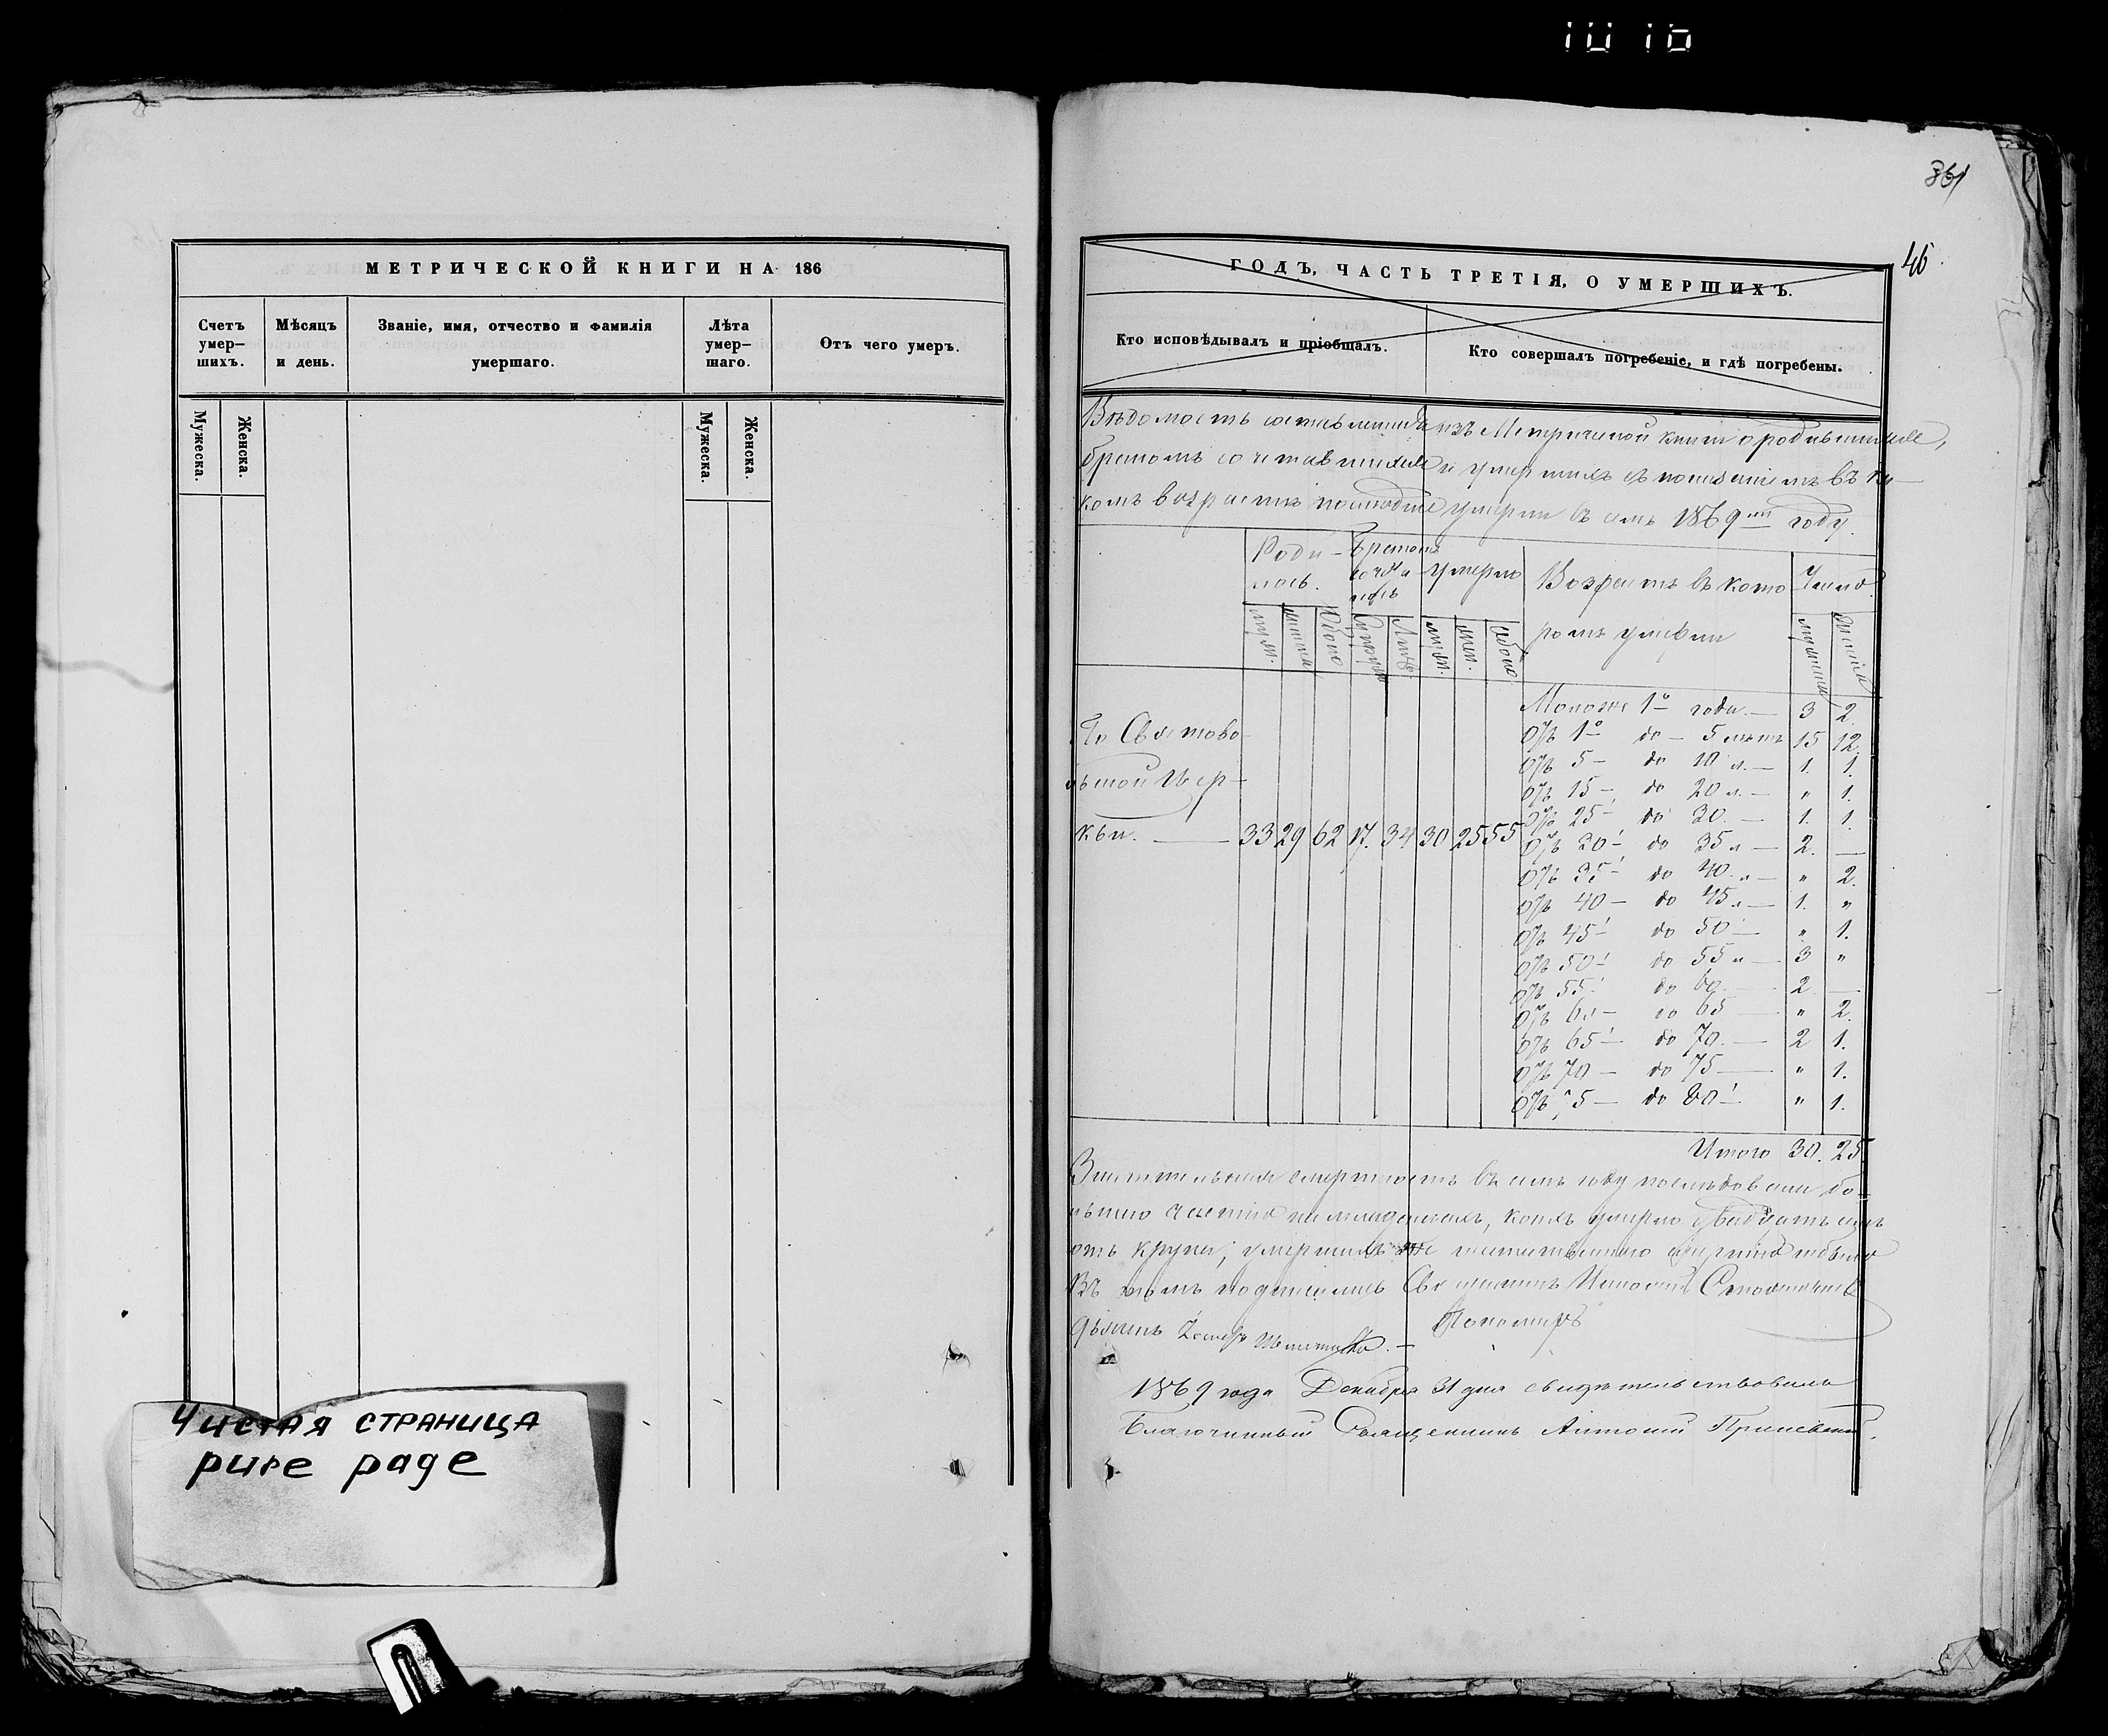 361
46
МЕТРИЧЕСКОЙ КНИГИ НА 186
Счетъ умер— шихъ.
Мѣсяцъ и день.
Званіе, имя, отчество и фамилія умершаго.
Лѣта умер— шаго.
Отъ чего умеръ.
Мужеска.
Женска.
Мужеска.
Женска.
Чистая страница
pure page
ГОДЪ, ЧАСТЬ ТРЕТІЯ, О УМЕРШИХЪ.
Кто исповѣдывалъ и пріобщалъ.
Кто совершалъ погребеніе, и гдѣ погребены.
Вѣдомость составленная изъ Метрической книги о родившихся,
бракомъ сочетавшихся и умершихъ съ показаніемъ въ ка—
комъ возрастѣ послѣдніе умерли въ семъ 1869мъ году.
Роди— лось.
Бракомъ сочета лось
Умерло
Возрастъ въ кото
Число
ромъ умерли
муж.
женска
Обоего
Лицъ
муж.
жен.
обоего
По Свято
Цер—
кви. — 33 29 62 17. 34 30 25 55
Моложе 1го года — 3 2.
Отъ 1го до — 5 лѣтъ 15 12.
Отъ 5 — до 10 л. — 1. 1.
Отъ 15 — до 20 л. — " 1.
Отъ 25 — до 30. — 1. 1.
Отъ 30 — до 35 л — 2. —
Отъ 35 — до 40 л — " 2.
Отъ 40 — до 45 л — 1. "
Отъ 45 — до 50 — " 1.
Отъ 50 — до 55 л — 3 "
Отъ 55 до 60. — 2 —
Отъ 60 — до 65 — " 2.
Отъ 65 — до 70. — 2 1.
Отъ 70 — до 75 — " 1.
Отъ 75 — до 80 — " 1.
Итого 30. 25
смертность въ семъ году послѣдовала бо—
льшею частію на младенцахъ, коихъ умерло двадцать семь
отъ крупа; умершихъ смертію
Въ томъ подписались Священникъ
Пономарь
1869 года Декабря 31 дня свидѣтельствовалъ
Благочинный Священникъ Антоній